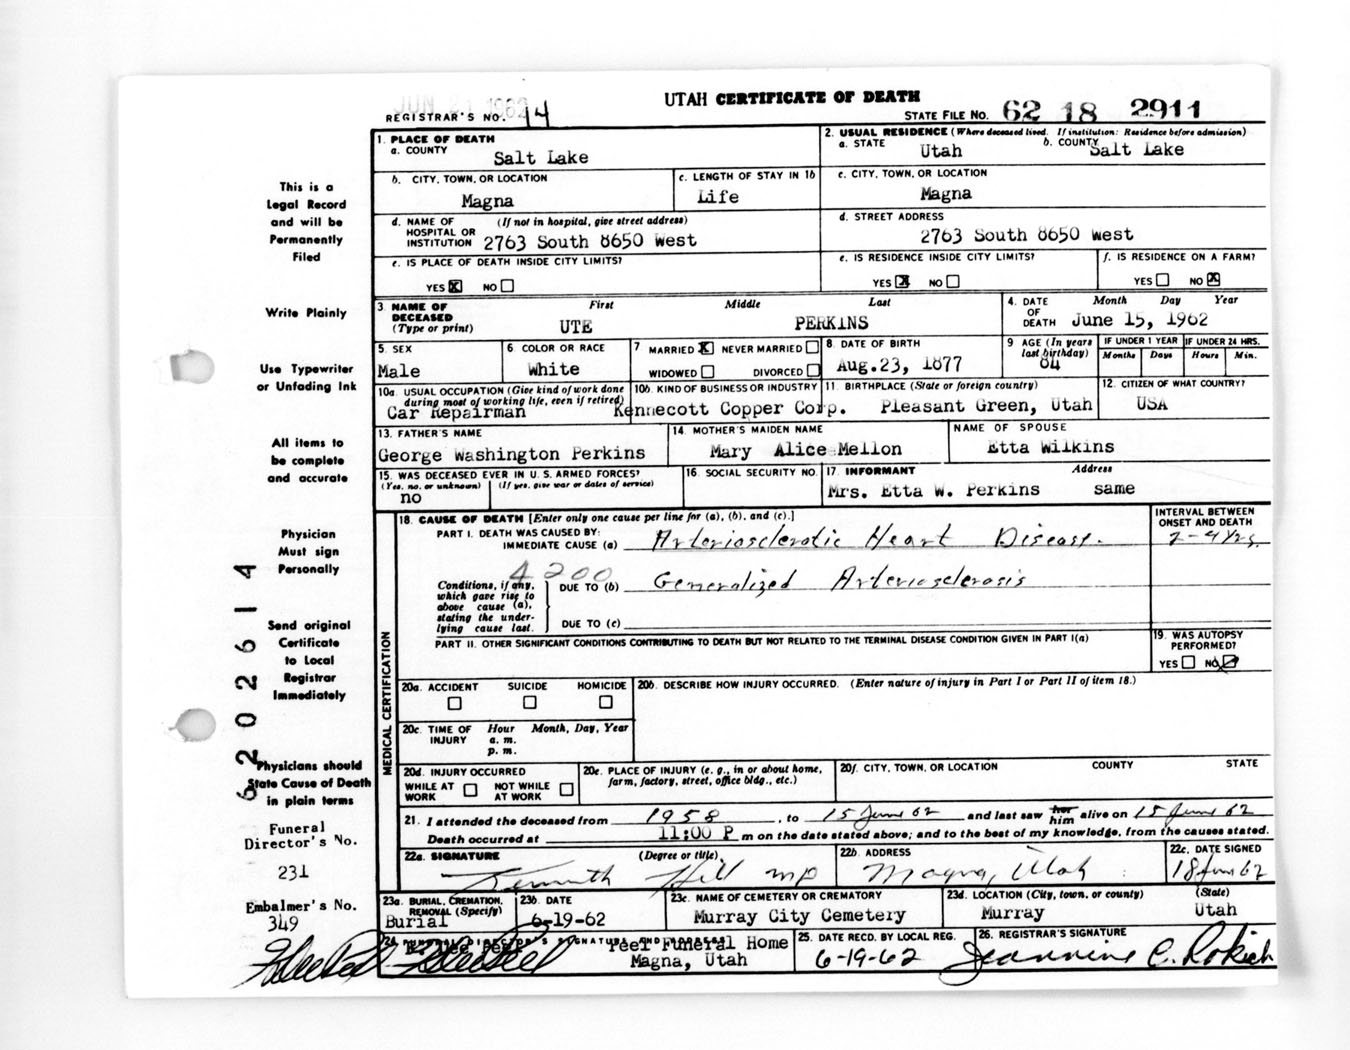 JUN 21 1962
UTAH CERTIFICATE OF DEATH
REGISTRAR'S NO. 14
STATE FILE NO. 62 18 2911
1. PLACE OF DEATH
a. COUNTY
Salt Lake
2. USUAL RESIDENCE (Where deceased lived. If institution: Residence before admission)
a. STATE b. COUNTY
Utah Salt Lake
b. CITY, TOWN, OR LOCATION
Magna
c. LENGTH OF STAY IN 1b
Life
c. CITY, TOWN, OR LOCATION
Magna
d. NAME OF (If not in hospital, give street address)
HOSPITAL OR
INSTITUTION 2763 South 8650 West
d. STREET ADDRESS
2763 South 8650 West
e. IS PLACE OF DEATH INSIDE CITY LIMITS?
YES X NO
e. IS RESIDENCE INSIDE CITY LIMITS?
YES X NO
f. IS RESIDENCE ON A FARM?
YES NO X
3. NAME OF DECEASED (Type or print)
First Middle Last
UTE PERKINS
4. DATE OF DEATH
Month Day Year
June 15, 1962
5. SEX
Male
6. COLOR OR RACE
White
7 MARRIED X NEVER MARRIED
WIDOWED DIVORCED
8. DATE OF BIRTH
Aug.23, 1877
9 AGE (In years last birthday)
84
IF UNDER 1 YEAR
Months Days
IF UNDER 24 HRS.
Hours Min.
10a. USUAL OCCUPATION (Give kind of work done
during most of working life, even if retired)
Car Repairman
10b. KIND OF BUSINESS OR INDUSTRY
Kennecott Copper Corp.
11. BIRTHPLACE (State or foreign country)
Pleasant Green, Utah
12. CITIZEN OF WHAT COUNTRY?
USA
13. FATHER'S NAME
George Washington Perkins
14. MOTHER'S MAIDEN NAME
Mary Alice Mellon
NAME OF SPOUSE
Etta Wilkins
15. WAS DECEASED EVER IN U. S. ARMED FORCES?
(Yes, no, or unknown) (If yes, give war or dates of service)
no
16. SOCIAL SECURITY NO.
17. INFORMANT Address
Mrs. Etta W. Perkins same
18. CAUSE OF DEATH [Enter only one cause per line for (a), (b), and (c).]
PART I. DEATH WAS CAUSED BY:
IMMEDIATE CAUSE (a) Arteriosclerotic Heart Disease.
INTERVAL BETWEEN
ONSET AND DEATH
2-4 Yrs.
4200
Conditions, if any,
which gave rise to
above cause (a),
stating the under-
lying cause last.
DUE TO (b) Generalized Arteriosclerosis
DUE TO (c)
PART II. OTHER SIGNIFICANT CONDITIONS CONTRIBUTING TO DEATH BUT NOT RELATED TO THE TERMINAL DISEASE CONDITION GIVEN IN PART I(a)
19. WAS AUTOPSY
PERFORMED?
YES NO
MEDICAL CERTIFICATION
20a. ACCIDENT SUICIDE HOMICIDE
20b. DESCRIBE HOW INJURY OCCURRED. (Enter nature of injury in Part I or Part II of item 18.)
20c. TIME OF INJURY
Hour Month, Day, Year
a. m.
p. m.
20d. INJURY OCCURRED
WHILE AT WORK NOT WHILE AT WORK
20e. PLACE OF INJURY (e. g., in or about home,
farm, factory, street, office bldg., etc.)
20f. CITY, TOWN, OR LOCATION COUNTY STATE
21. I attended the deceased from 1958, to 15 June 62 and last saw her him alive on 15 June 62
Death occurred at 11:00 P m on the date stated above; and to the best of my knowledge, from the causes stated.
22a. SIGNATURE (Degree or title)
Kenneth Hill MD
22b. ADDRESS
Magna, Utah
22c. DATE SIGNED
18 June 62
23a. BURIAL, CREMATION,
REMOVAL (Specify)
Burial
23b. DATE
6-19-62
23c. NAME OF CEMETERY OR CREMATORY
Murray City Cemetery
23d. LOCATION (City, town, or county) (State)
Murray Utah
24. FUNERAL DIRECTOR'S SIGNATURE AND ADDRESS
Peel Funeral Home
Magna, Utah
25. DATE RECD. BY LOCAL REG.
6-19-62
26. REGISTRAR'S SIGNATURE
Jeannine C.
This is a
Legal Record
and will be
Permanently
Filed
Write Plainly
Use Typewriter
or Unfading Ink
All items to
be complete
and accurate
Physician
Must sign
Personally
Send original
Certificate
to Local
Registrar
Immediately
Physicians should
State Cause of Death
in plain terms
Funeral
Director's No.
231
Embalmer's No.
349
6202614